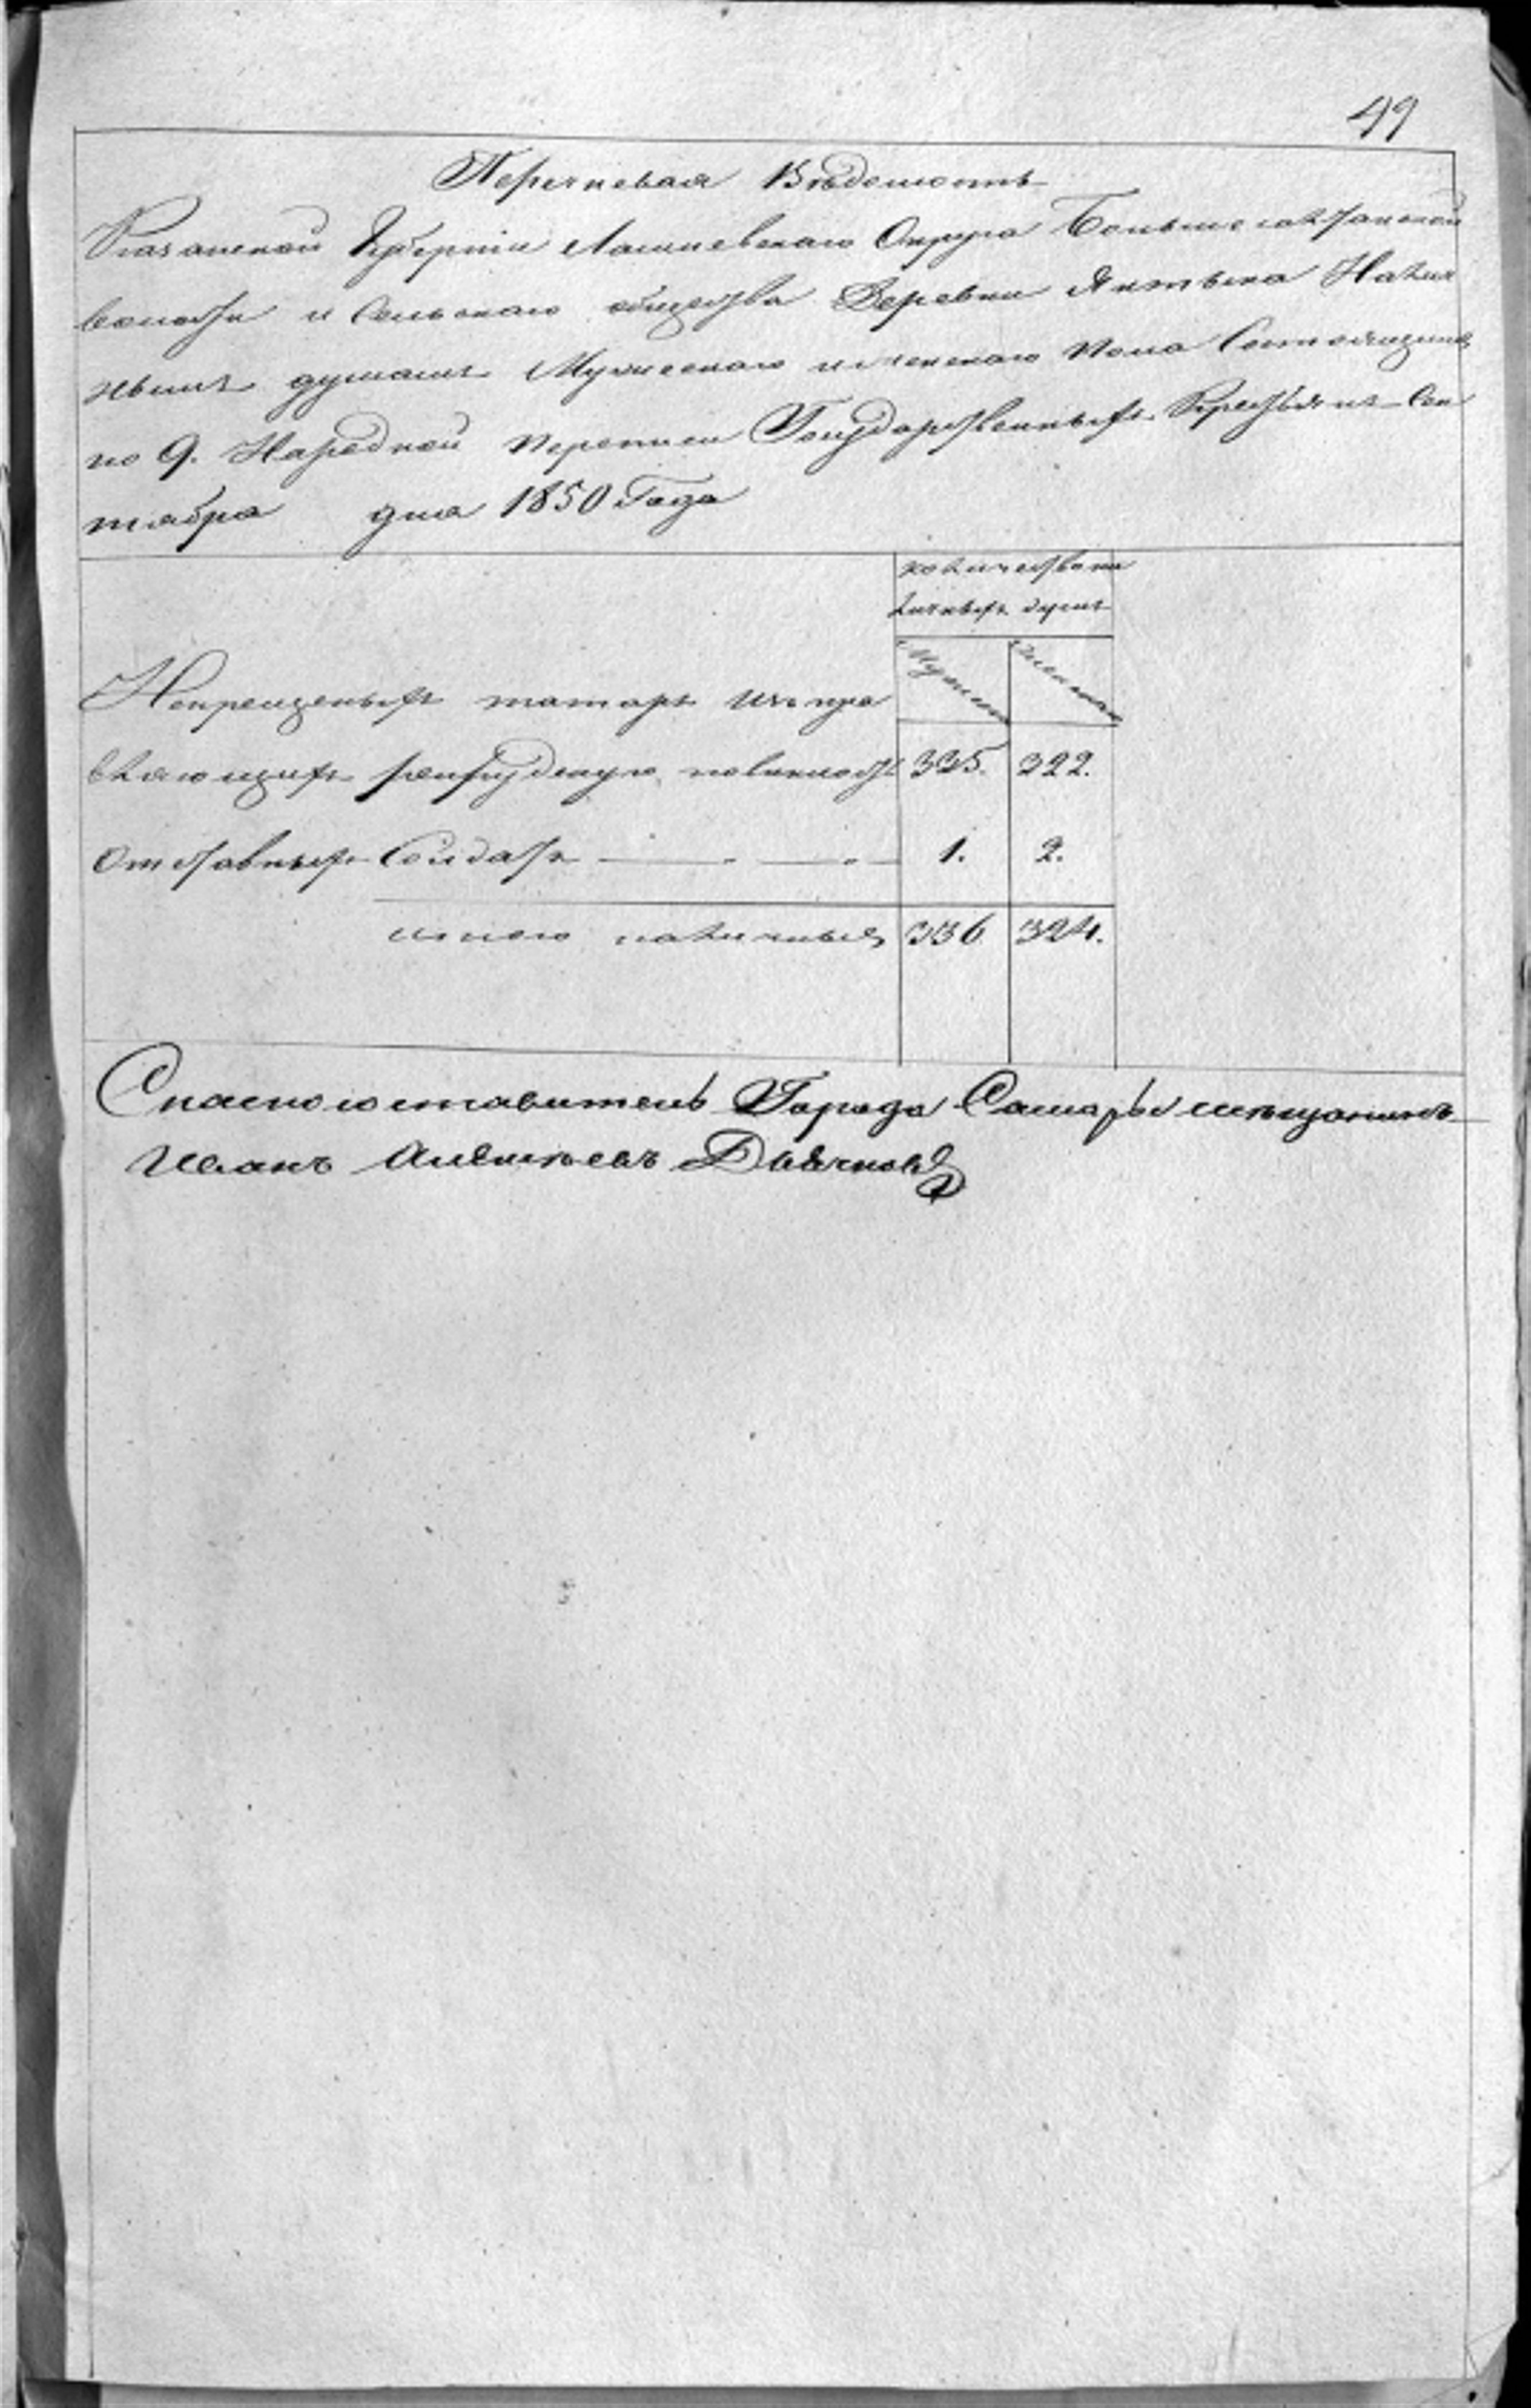 49
Перечневая Вѣдомость
Казанской Губернiи Лаишевскаго Округа Больше
волости и Сельскаго общества Деревни Янтыка Налич
нымъ душамъ Мужескаго и женскаго пола Состоящимъ
по 9. Народной переписи Государственныхъ Крестьянъ Сен
тября дня 1850 Года
количество на
личныхъ душъ
Мужеска Женска
Некрещеныхъ татаръ исъ пра
вляющихъ рекрудскую повинность 335. 322.
Отставныхъ Солдатъ 1. 2.
итого наличныхъ 336 324.
Города Самары мещанинъ
Иванъ